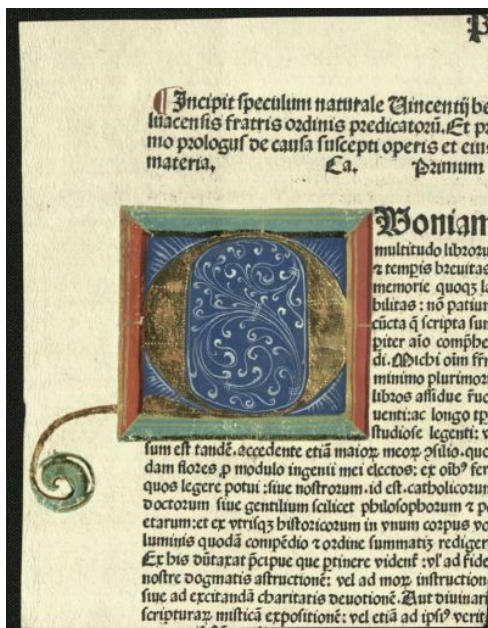 P
¶ Incipit speculum naturale Vincentij be
luacensis fratris ordinis predicatorū. Et pri
mo prologus de causa suscepti operis et eius
materia. Ca. Primum
QVoniam
multitudo libroru
⁊ tempis breuitas
memorie quoqꝫ la
bilitas : nō patiun
cūcta q̄ scripta sun
piter aīo compħe
di. Michi oīm fr̄m
minimo plurimor
libros assidue
uenti: ac longo tp̄
studiose legenti: v
sum est tandē. accedente etiā maioꝝ meoꝝ ꝯsilio. quo
dam flores ꝓ modulo ingenii mei electos: ex oībꝰ fer
quos legere potui : siue nostrorum. id est. catholicorum
doctorum siue gentilium scilicet philosophorum ⁊ po
etarum: et ex vtrisqꝫ historicorum in vnum corpus vo
luminis quodā compēdio ⁊ ordine summatiꝫ rediger
Ex his dūtaxat p̄cipue que ptinere vident̄: vl' ad fide
nostre dogmatis astructionē: vel ad moꝝ instruction
siue ad excitandā charitatis deuotionē. Aut diuinari
scripturaꝝ misticā expositionē: vel etiā ad ipsiꝰ verit